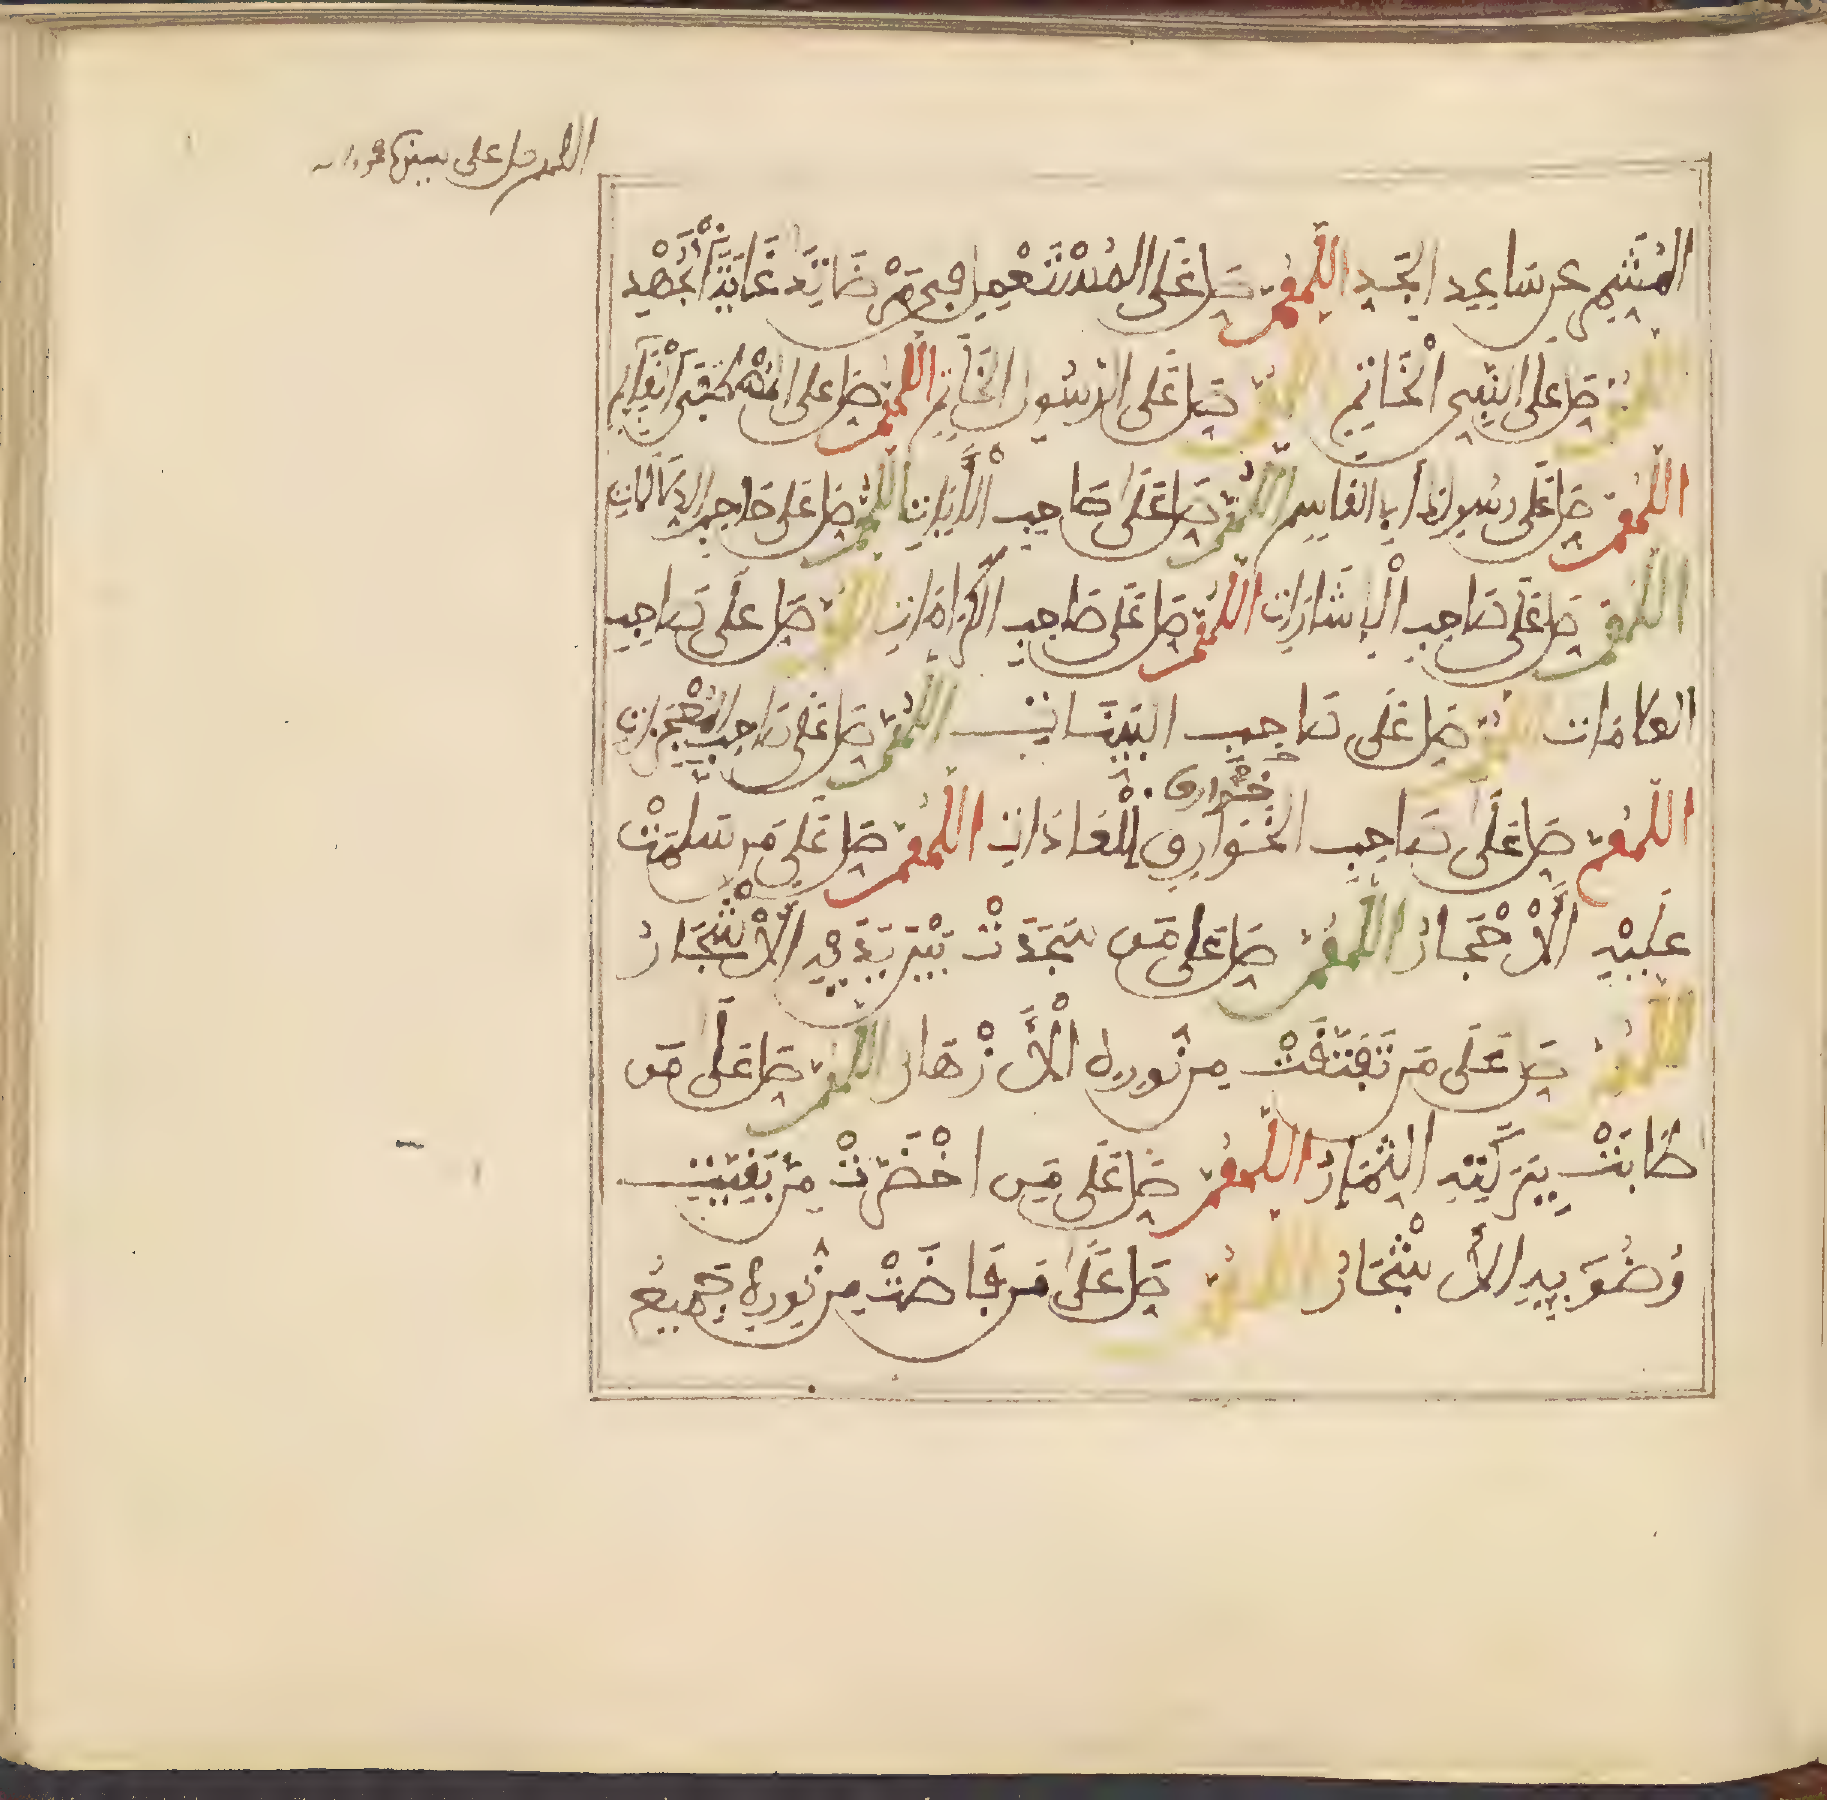 اللهم صل على سيدنا محمد
المُشَمِّرِ عن سَاعِدِ الجَدِّ اللَّهُمَّ صَلِّ عَلَى المُسْتَعْمِلِ فِي مَرْضَاتِكَ غَايَةَ الْجُهْدِ
اللهم صَلِّ على النَّبِيِّ الْخَاتِمِ اللهم صَلِّ عَلَى الرَّسُولِ الخَاتِمِ اللَّهُمَّ صَلِّ على المُصْطَفَى الْقَائِمِ
اللَّهُمَّ صَلِّ عَلَى رَسُولِكَ أَبِي القَاسِمِ اللَّهُمَّ صَلِّ عَلَى صَاحِبِ الْأَيَاتِ اللَّهُمَّ صَلِّ عَلَى صَاحِبِ الدَّلَالَاتِ
اللَّهُمَّ صَلِّ عَلَى صَاحِبِ الْإِشَارَاتِ اللَّهُمَّ صَلِّ عَلَى صَاحِبِ الْكَرَامَاتِ اللهم صَلِّ عَلَى صَاحِبِ
العَلَامَاتِ اللهم صَلِّ عَلَى صَاحِبِ البَيِّنَاتِ اللَّهُمَّ صَلِّ عَلَى صَاحِبِ المُعْجِزَاتِ
خَوَارِقِ
اللَّهُمَّ صَلِّ عَلَى صَاحِبِ الخَوَارِقِ لِلْعَادَاتِ اللَّهُمَّ صَلِّ عَلَى مَن سَلَّمَتْ
عَلَيْهِ الْأَحْجَارُ اللَّهُمَّ صَلِّ عَلَى مَن سَجَدَتْ بَيْنَ يَدَيْهِ الْأَشْجَارُ
اللهم صَلِّ عَلَى مَن تَفَتَّقَتْ مِن نُورِهِ الْأَزْهَارُ اللَّهُمَّ صَلِّ عَلَى مَن
طَابَتْ بِبَرَكَتِهِ الثِّمَارُ اللَّهُمَّ صَلِّ عَلَى مَنِ اخْضَرَّتْ مِن بَقِيَّتِ
وَضُوءِهِ الْأَشْجَارُ اللهم صَلِّ عَلَى مَن فَاضَتْ مِن نُورِهِ جَمِيعُ